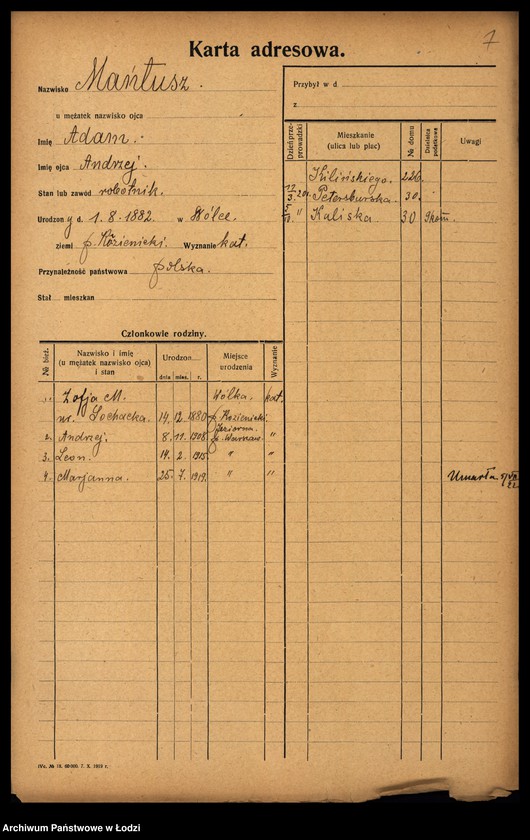 7
Karta adresowa.
Nazwisko Mańtusz.
u mężatek nazwisko ojca
Imię Adam.
Imię ojca Andrzej.
Stan lub zawód robotnik.
Urodzony d. 1.8.1882 w Wólce
ziemi p. Kozienicki. Wyznanie kat.
Przynależność państwowa polska.
Stał mieszkan
Przybył w d
z
Dzień przeprowadzki Mieszkanie (ulica lub plac) № domu Dzielnica podatkowa Uwagi
Kilińskiego. 226.
20r. Petersburska. 30.
" Kaliska 30 9 kom.
Członkowie rodziny.
№ bież. Nazwisko i imię (u mężatek nazwisko ojca) i stan Urodzon dnia mies. r. Miejsce urodzenia Wyznanie
1. Zofja M. Wólka. kat.
nr. Sochacka. 14. 12. 1880 p. Kozienicki.
Jeziorna
2. Andrzej. 8. 11. 1908. p. Warszaw. "
3. Leon. 14. 2. 1915. " "
4. Marjanna. 25. 7. 1919. " " Umarła
IVc. № 18. 60 000. 7. X. 1919 r.
Archiwum Państwowe w Łodzi